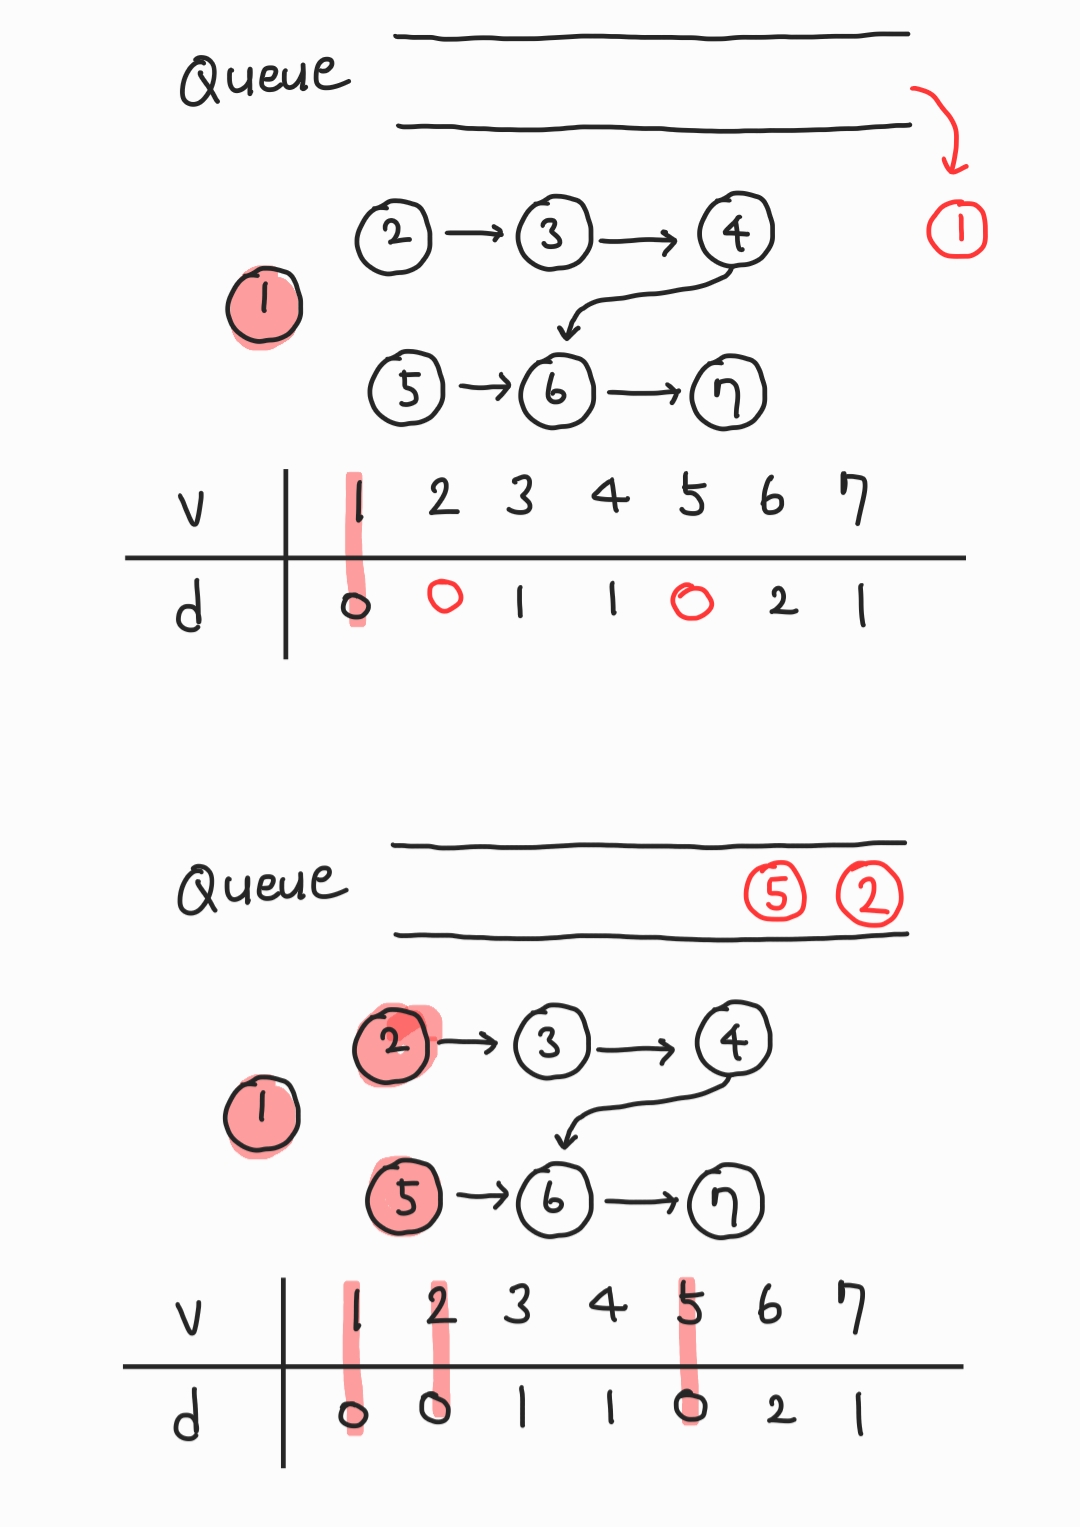 Queue
1
2 3 4
1
5 6 7
v 1 2 3 4 5 6 7
d 0 0 1 1 0 2 1
Queue 5 2
2 3 4
1
5 6 7
v 1 2 3 4 5 6 7
d 0 0 1 1 0 2 1